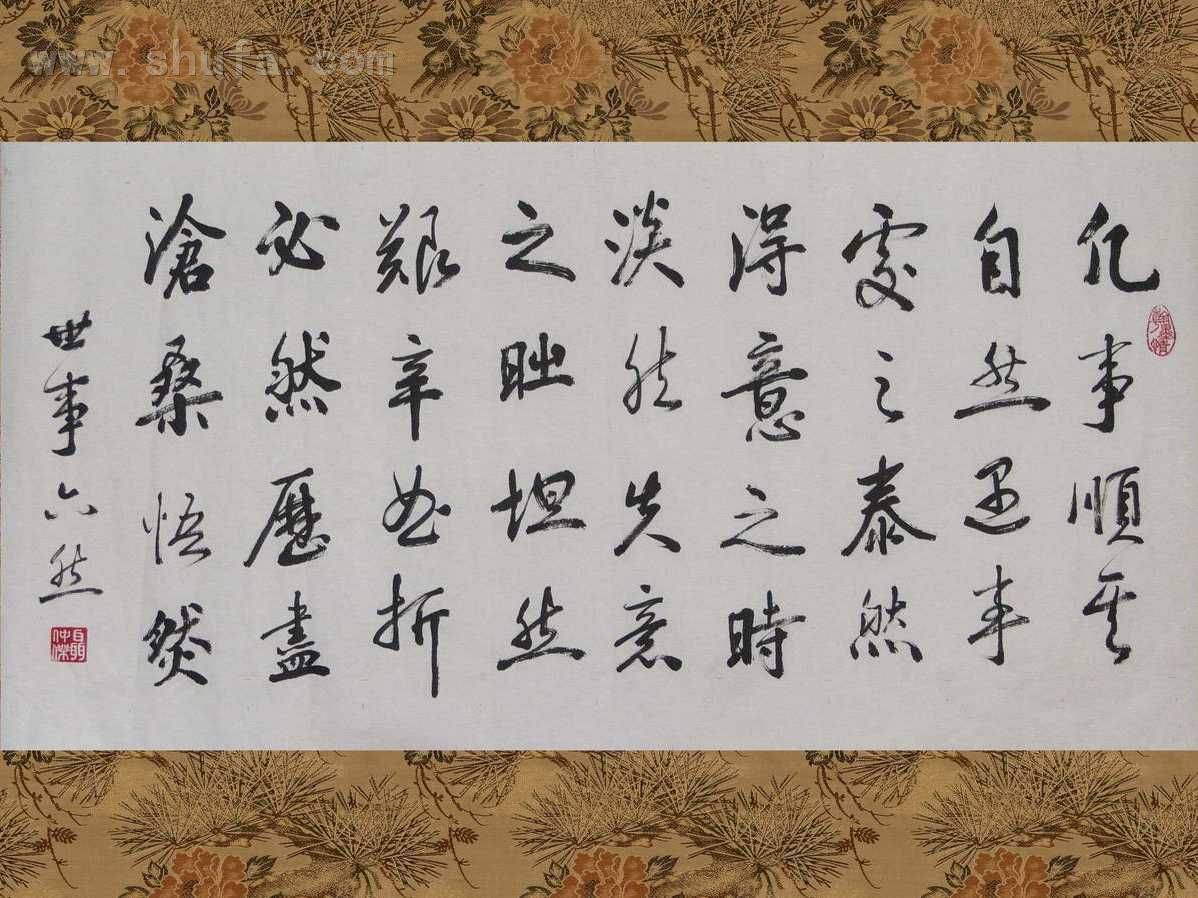 www.shufa.com
凡事順其
自然遇事
處之泰然
得意之時
淡然失意
之時坦然
艱辛曲折
必然歷盡
滄桑悟然
世事六然
翰墨情